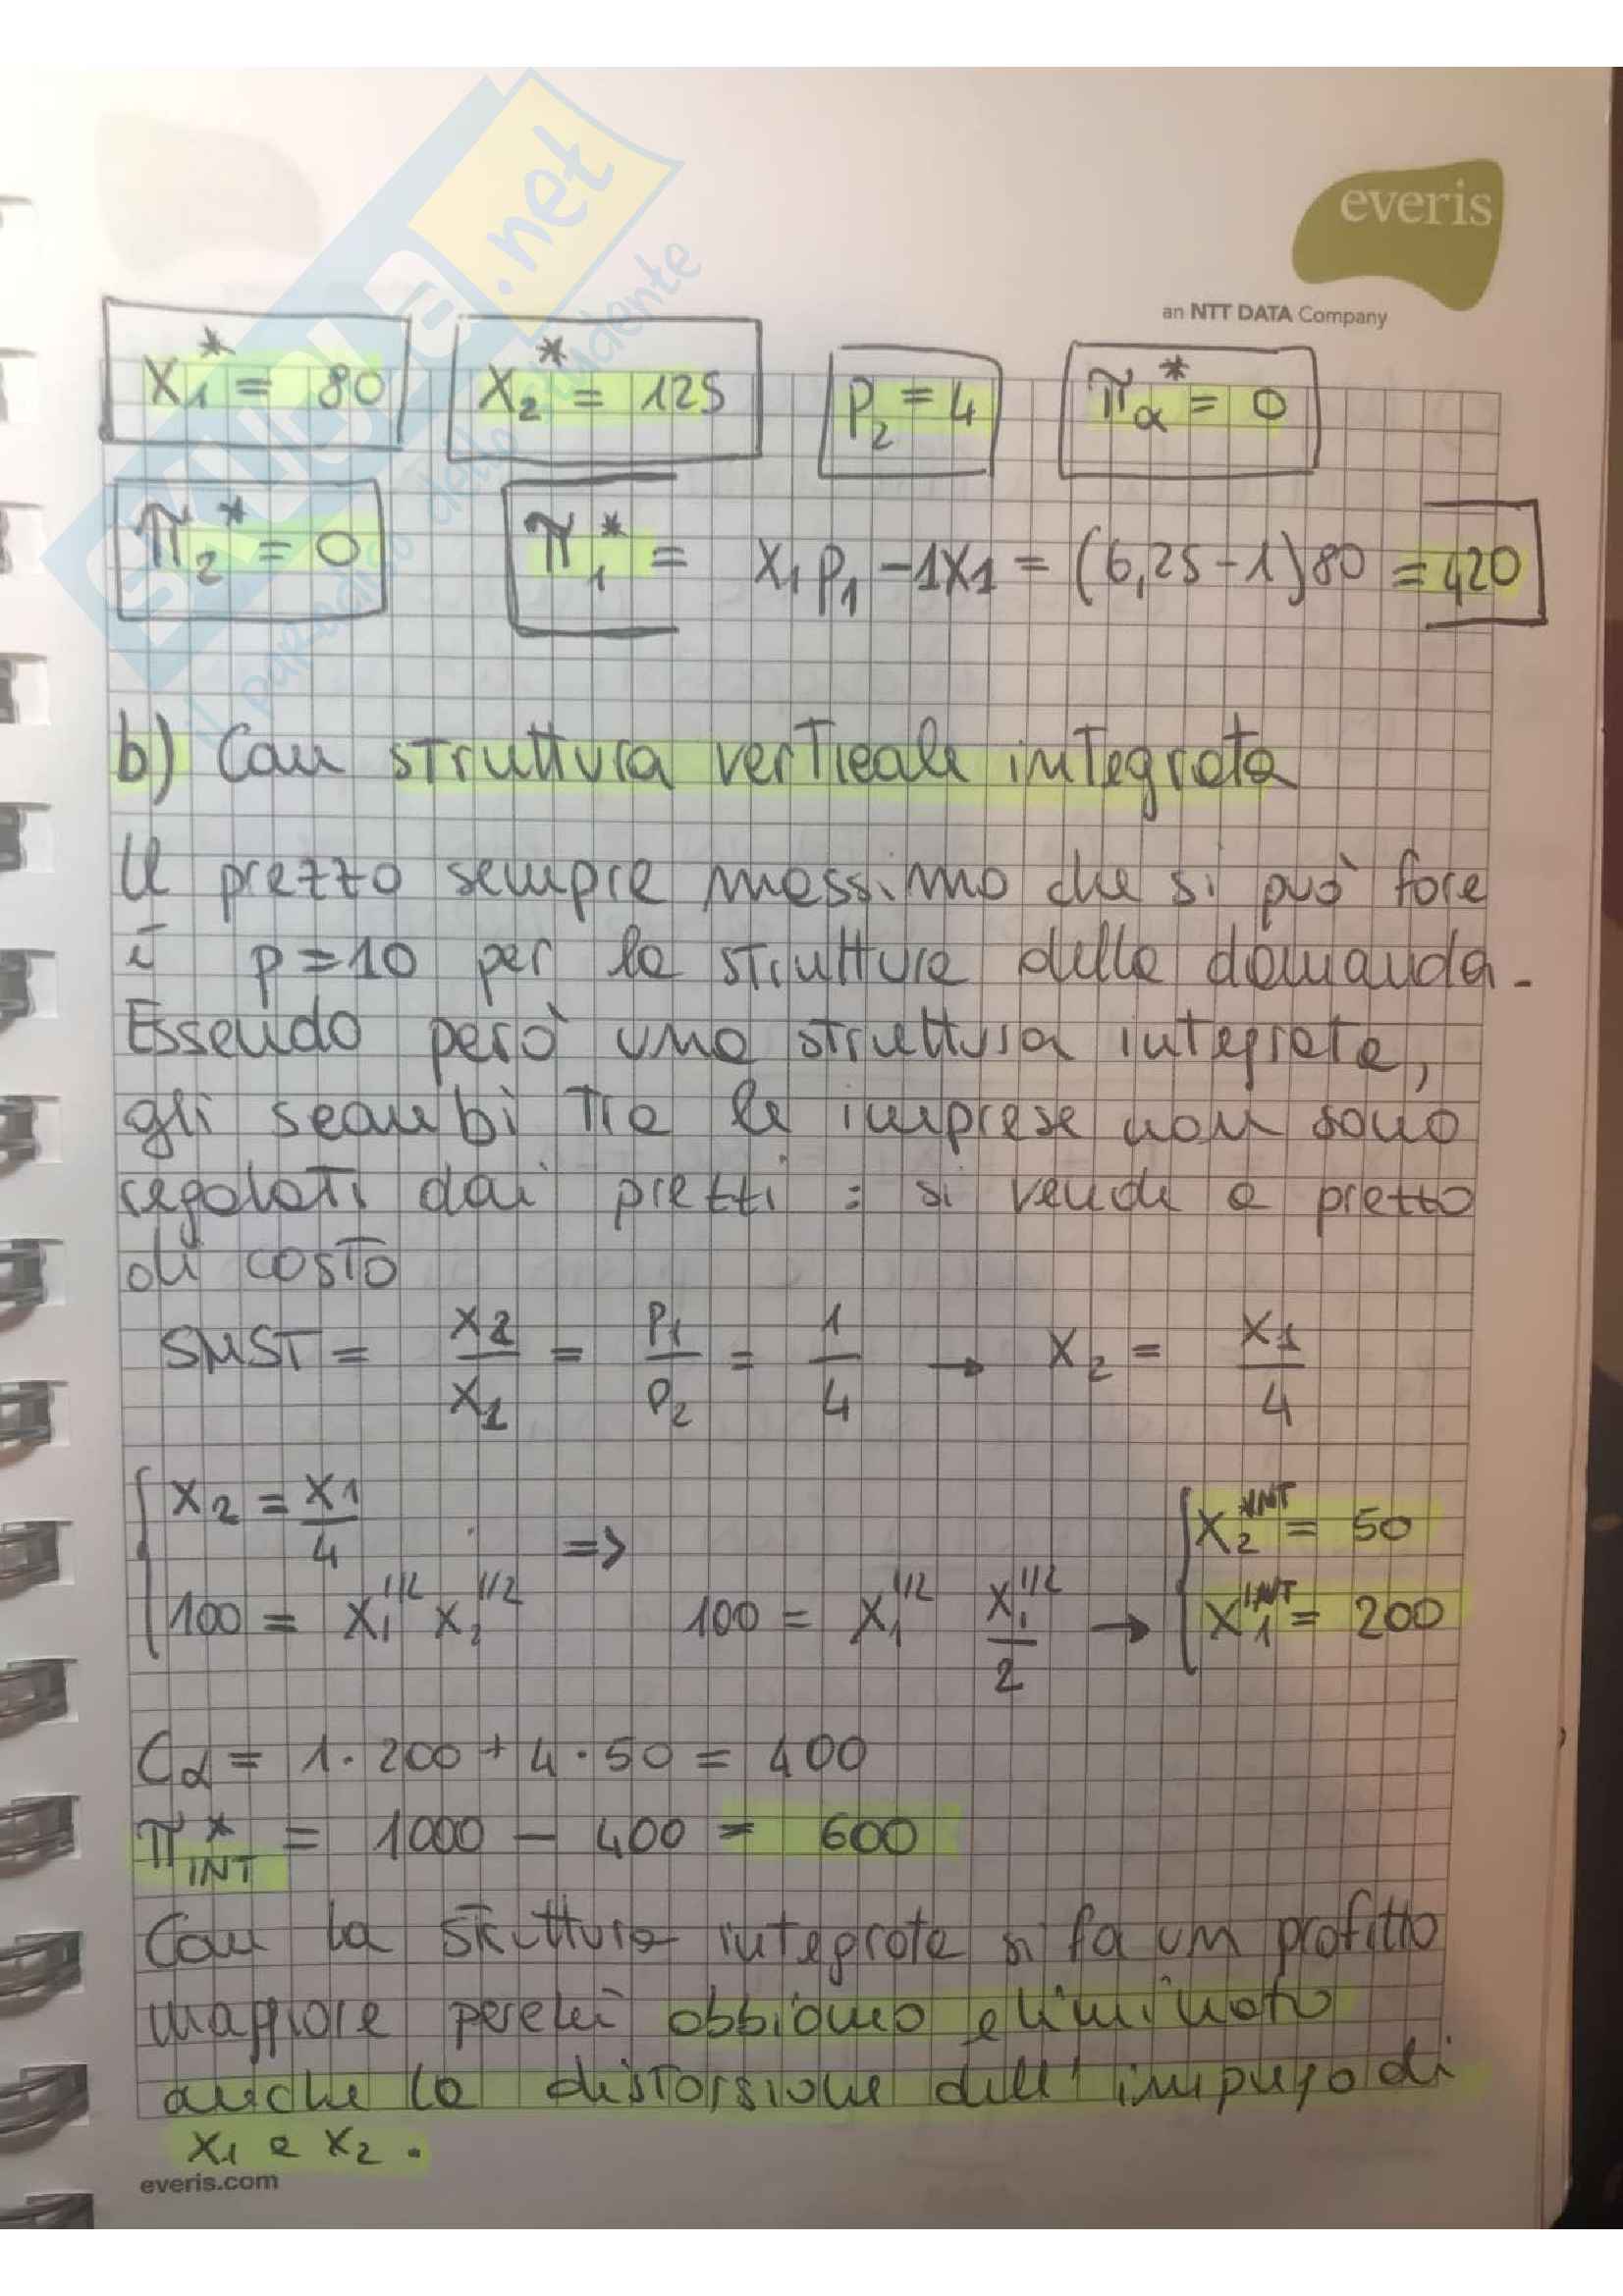 SKUOLA.net
il paradiso dello studente
everis
an NTT DATA Company
X₁* = 80 X₂* = 125 P₂ = 4 π_α* = 0
π₂* = 0 π₁* = X₁P₁ - 1X1 = (6,25-1)80 = 420
b) Con struttura verticale integrata
Il prezzo sempre massimo che si può fare
è p=10 per la struttura della domanda.
Essendo però una struttura integrata,
gli scambi tra le imprese non sono
regolati dai prezzi : si vende a prezzo
di costo
SMST = X2/X1 = P1/P2 = 1/4 → X2 = X1/4
{ X2 = X1/4 => { X₂^INT = 50
100 = X₁^1/2 X₂^1/2 100 = X₁^1/2 X₁^1/2/2 → X₁^INT = 200
Cα = 1·200 + 4·50 = 400
π*INT = 1000 - 400 = 600
Con la struttura integrata si fa un profitto
maggiore perché abbiamo eliminato
anche la distorsione dell'impiego di
X1 e X2.
everis.com